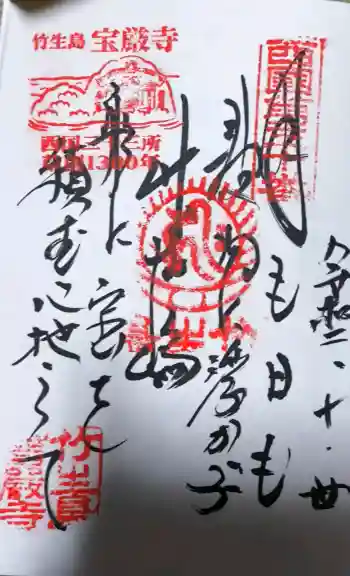 竹生島 宝厳寺
西国三十三所
草創1300年
令和二・十・
月も日も
波間に浮かぶ
竹生島
舟に宝を
積む心地して
竹生島